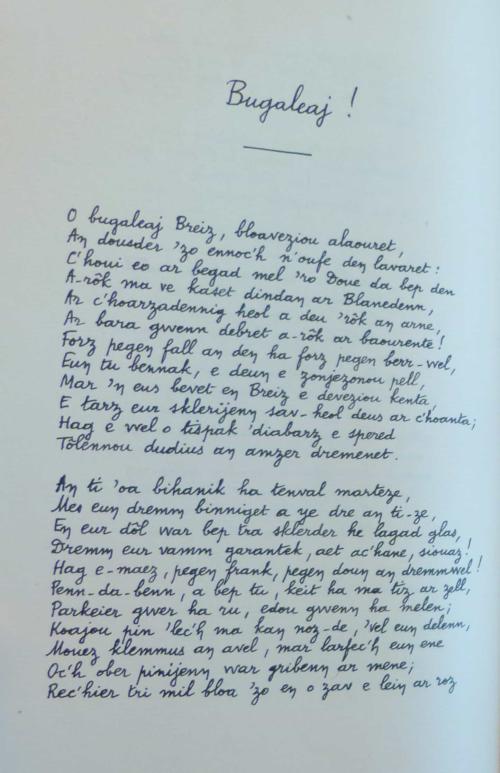 Bugaleaj !
O bugaleaj Breiz, bloaveziou alaouret,
An dousder 'zo ennoc'h n'oufe den lavaret :
C'houi eo ar begad mel 'ro Doue da bep den
A-rôk ma ve kaset dindan ar Blanedenn,
Ar c'hoarzadennig heol a deu 'rôk an arne,
Ar bara gwenn debret a-rôk ar baourente !
Forz pegen fall an den ha forz pegen berr-wel,
Eun tu bennak, e deun e zonjezonou pell,
Mar 'n eus bevet en Breiz e deveziou kenta,
E tarz eur sklerijenn sav-heol deus ar c'hoanta;
Hag e wel o tispak 'diabarz e spered
Tôlennou dudius an amzer dremenet.
An ti 'oa bihanik ha tenval marteze,
Mes eun dremm binniget a ye dre an ti-ze,
En eur dôl war bep tra sklerder he lagad glas,
Dremm eur vamm garantek, aet ac'hane, siouaz !
Hag e-maez, pegen frank, pegen doun an dremmwel !
Penn-da-benn, a bep tu, keit ha ma tiz ar zell,
Parkeier gwer ha ru, edou gwenn ha melen;
Koajou pin 'lec'h ma kan noz-de, 'vel eun delenn,
Mouez klemmus an avel, mar larfec'h eun ene
Oc'h ober pinijenn war gribenn ar mene;
Rec'hier tri mil bloa 'zo en o zav e lein ar roz